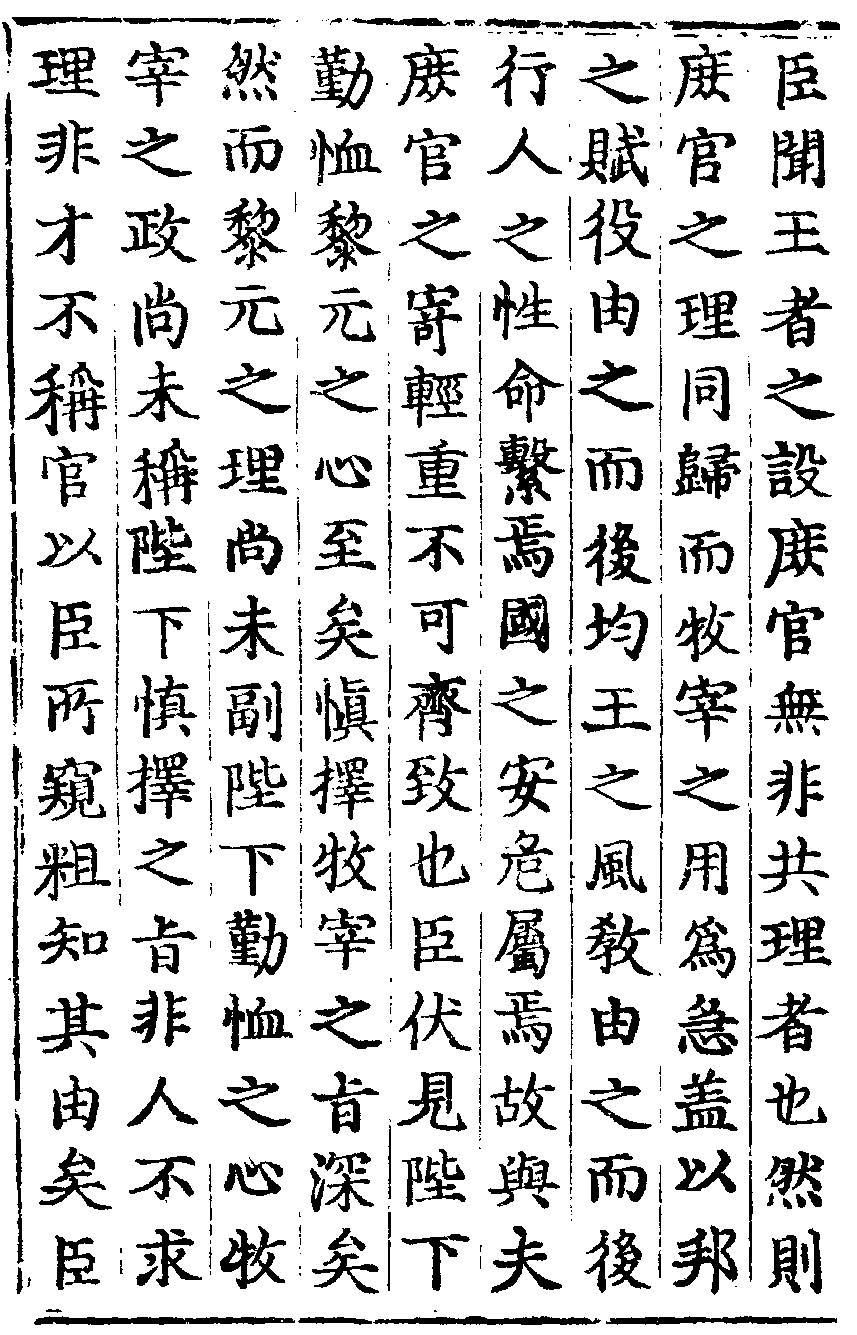 臣聞王者之設庻官無非共理者也然則
庻官之理同歸而牧宰之用爲急盖以邦
之賦役由之而後均王之風敎由之而後
行人之性命繫焉國之安危屬焉故與夫
庻官之寄輕重不可齊致也臣伏見陛下
勤恤黎元之心至矣愼擇牧宰之㫖深矣
然而黎元之理尚未副陛下勤恤之心牧
宰之政尚未稱陛下慎擇之㫖非人不求
理非才不稱官以臣所窺粗知其由矣臣